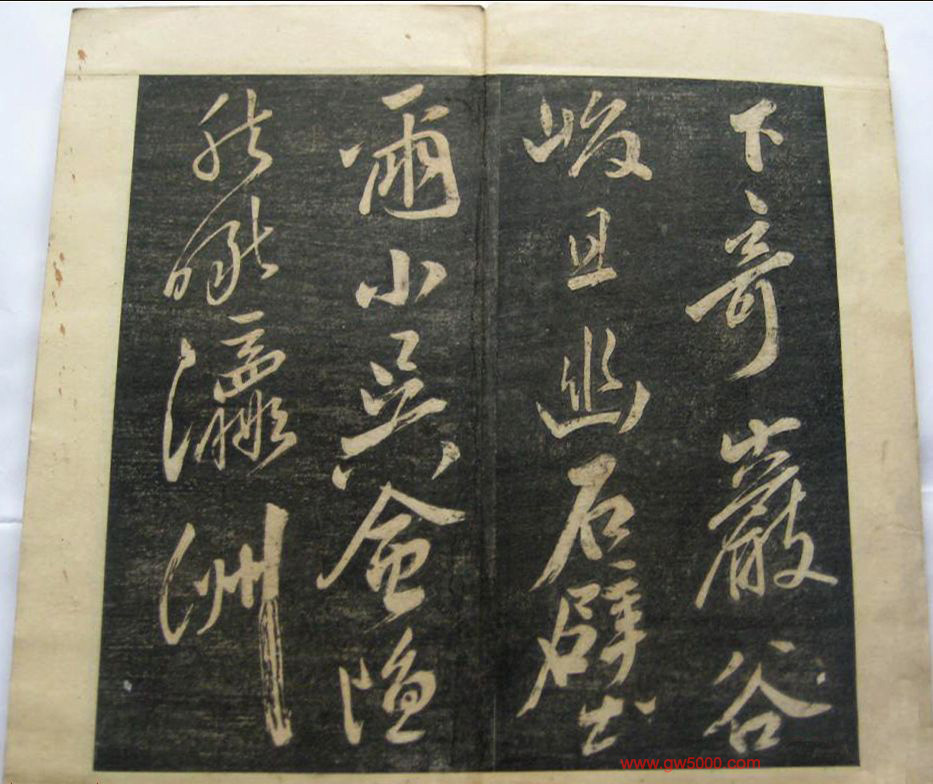 下奇巖谷
峻且幽石壁
爾小吳會
然瞰瀛洲
www.gw5000.com